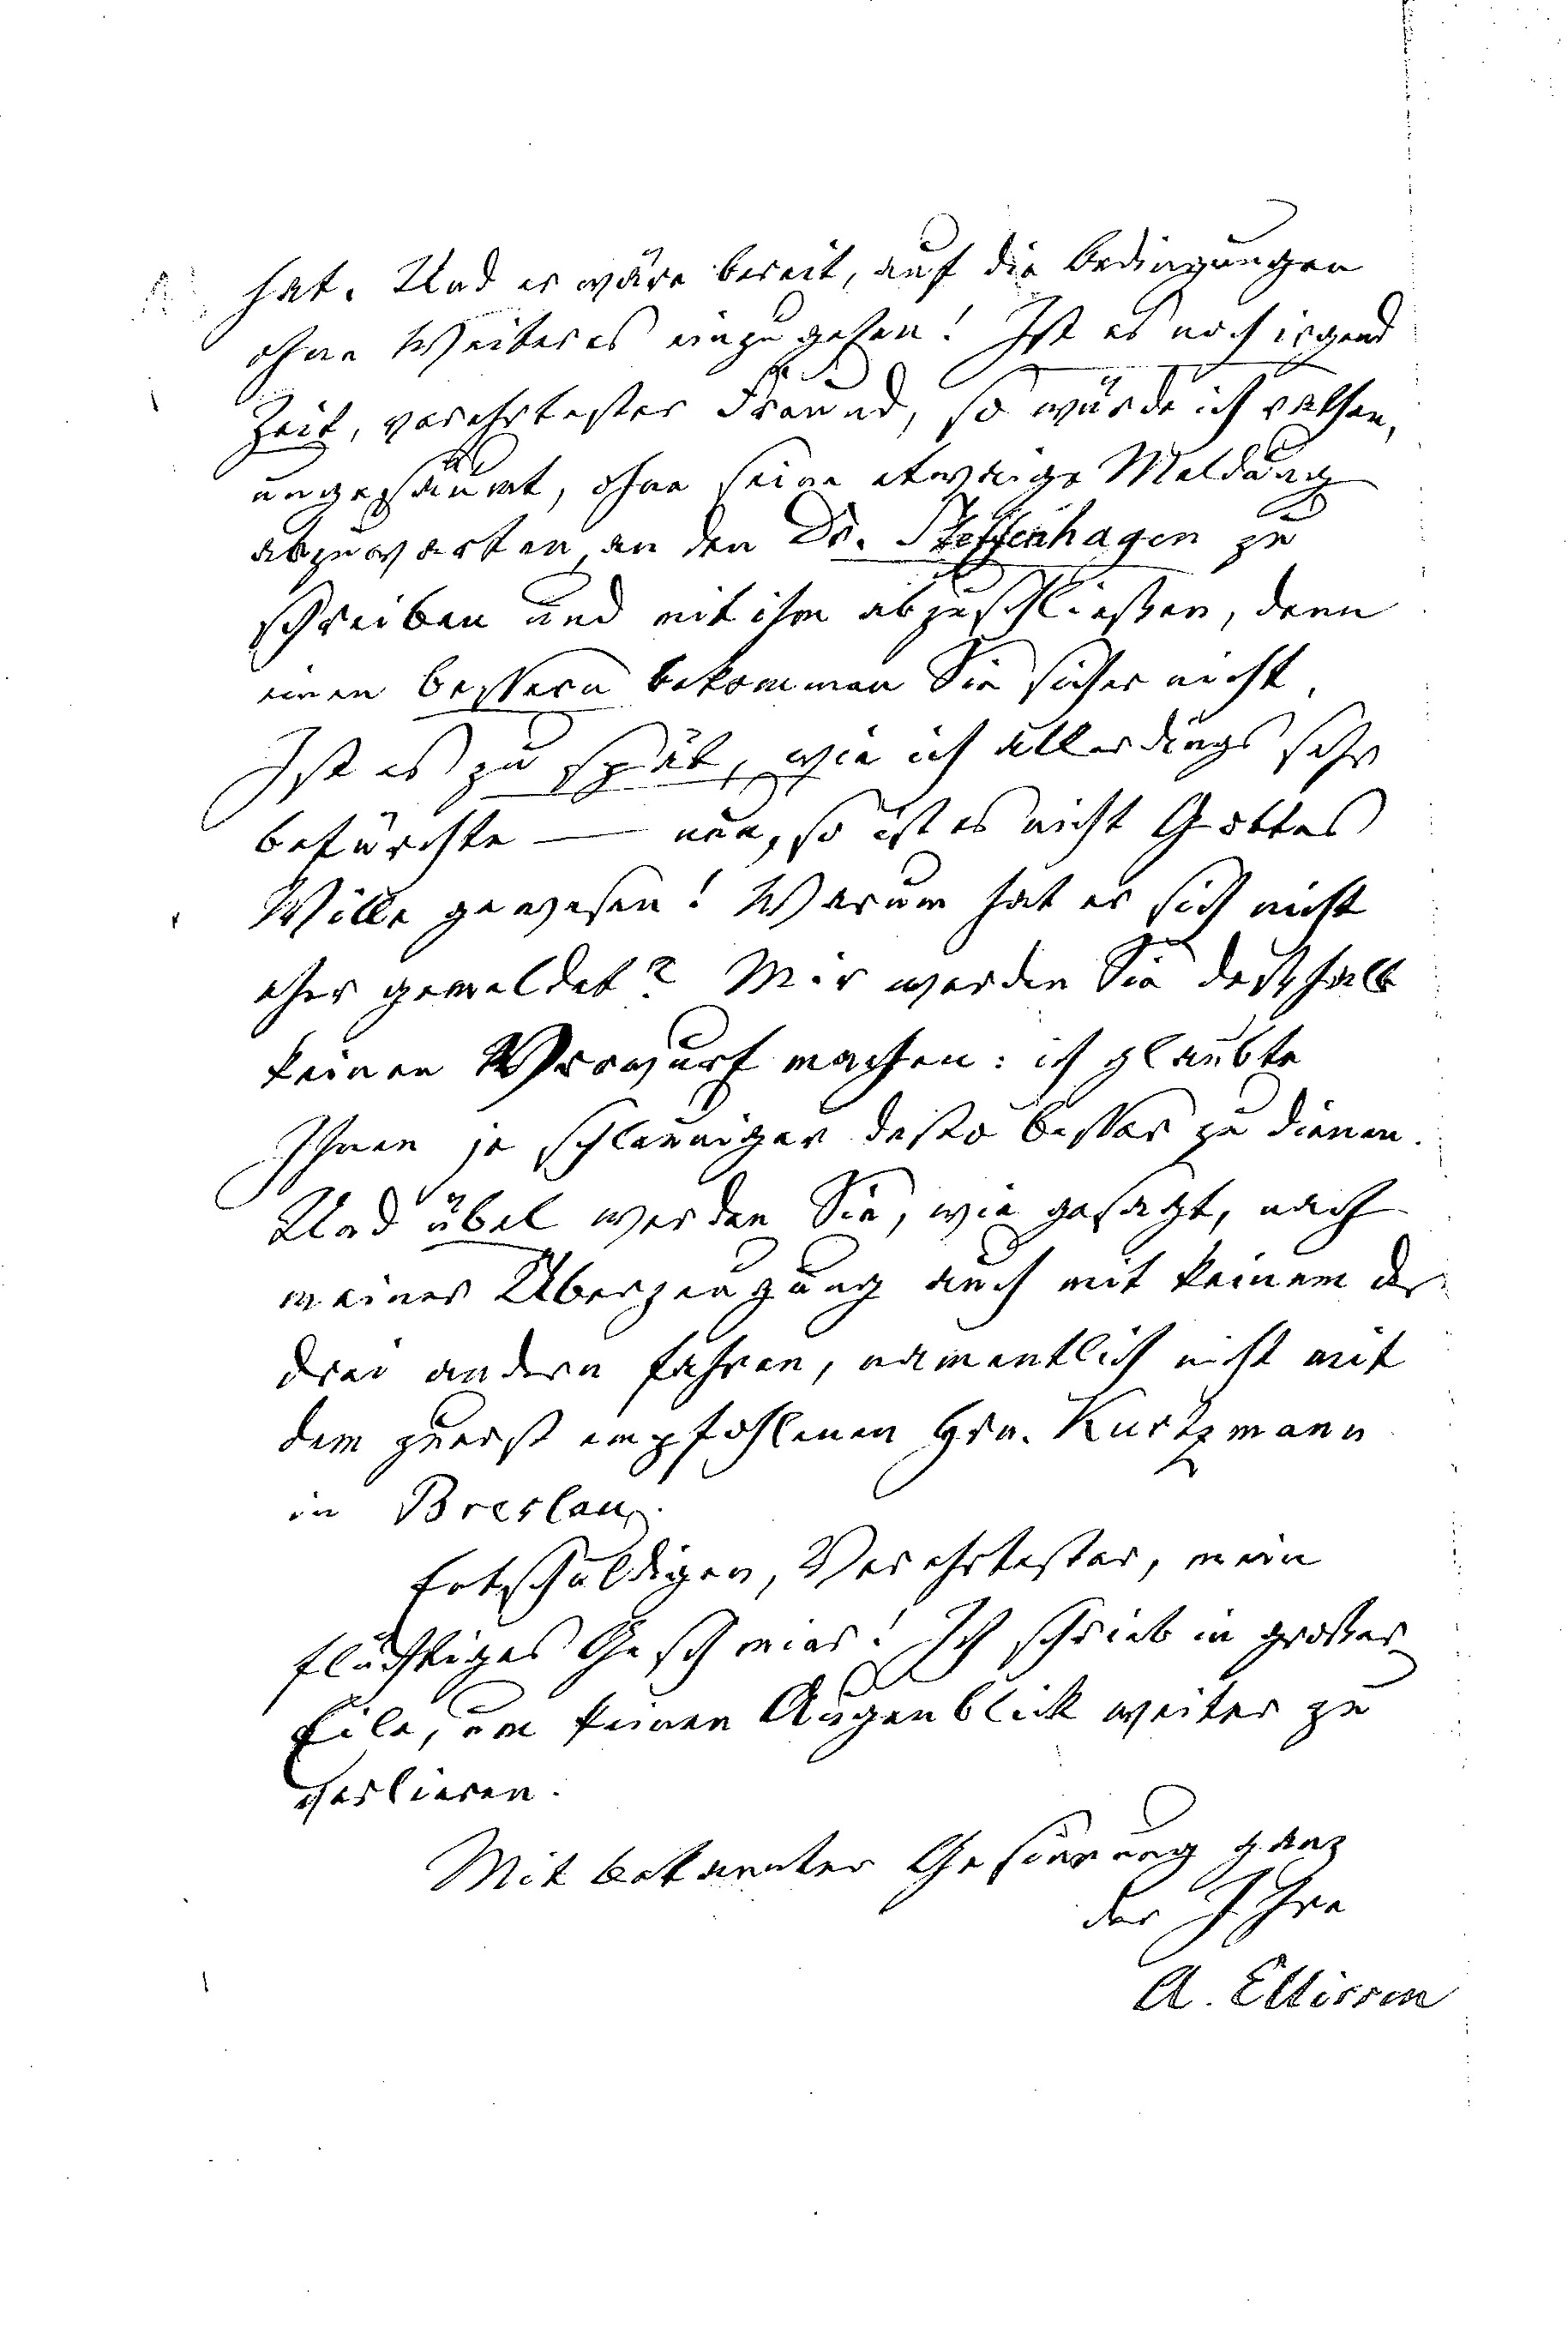 hat. Und er wäre bereit, auf die Bedingungen
ohne Weiteres einzugehen! Ist es noch irgend
Zeit, verehrtester Freund, so würde ich rathen,
ungesäumt, ohne seine etwaige Meldung
abzuwarten, an den Dr. Steffenhagen zu
schreiben und mit ihm abzuschließen, denn
einen bessern bekommen Sie sicher nicht.
Ist es zu spät, wie ich allerdings sehr
befürchte — nun, so ist es nicht Gottes
Wille gewesen! Warum hat er sich nicht
eher gemeldet? Mir werden Sie deßhalb
keinen Vorwurf machen: ich glaubte
Ihnen je schleuniger desto besser zu dienen.
Und übel werden Sie, wie gesagt, nach
meiner Überzeugung auch mit keinem der
drei andern fahren, namentlich nicht mit
dem zuerst empfohlenen Hrn. Kurtzmann
in Breslau.
Entschuldigen, Verehrtester, mein
flüchtiges Geschmier! Ich schrieb in großer
Eile, um keinen Augenblick weiter zu
verlieren.
Mit bekannter Gesinnung ganz
der Ihre
A. Ellissen